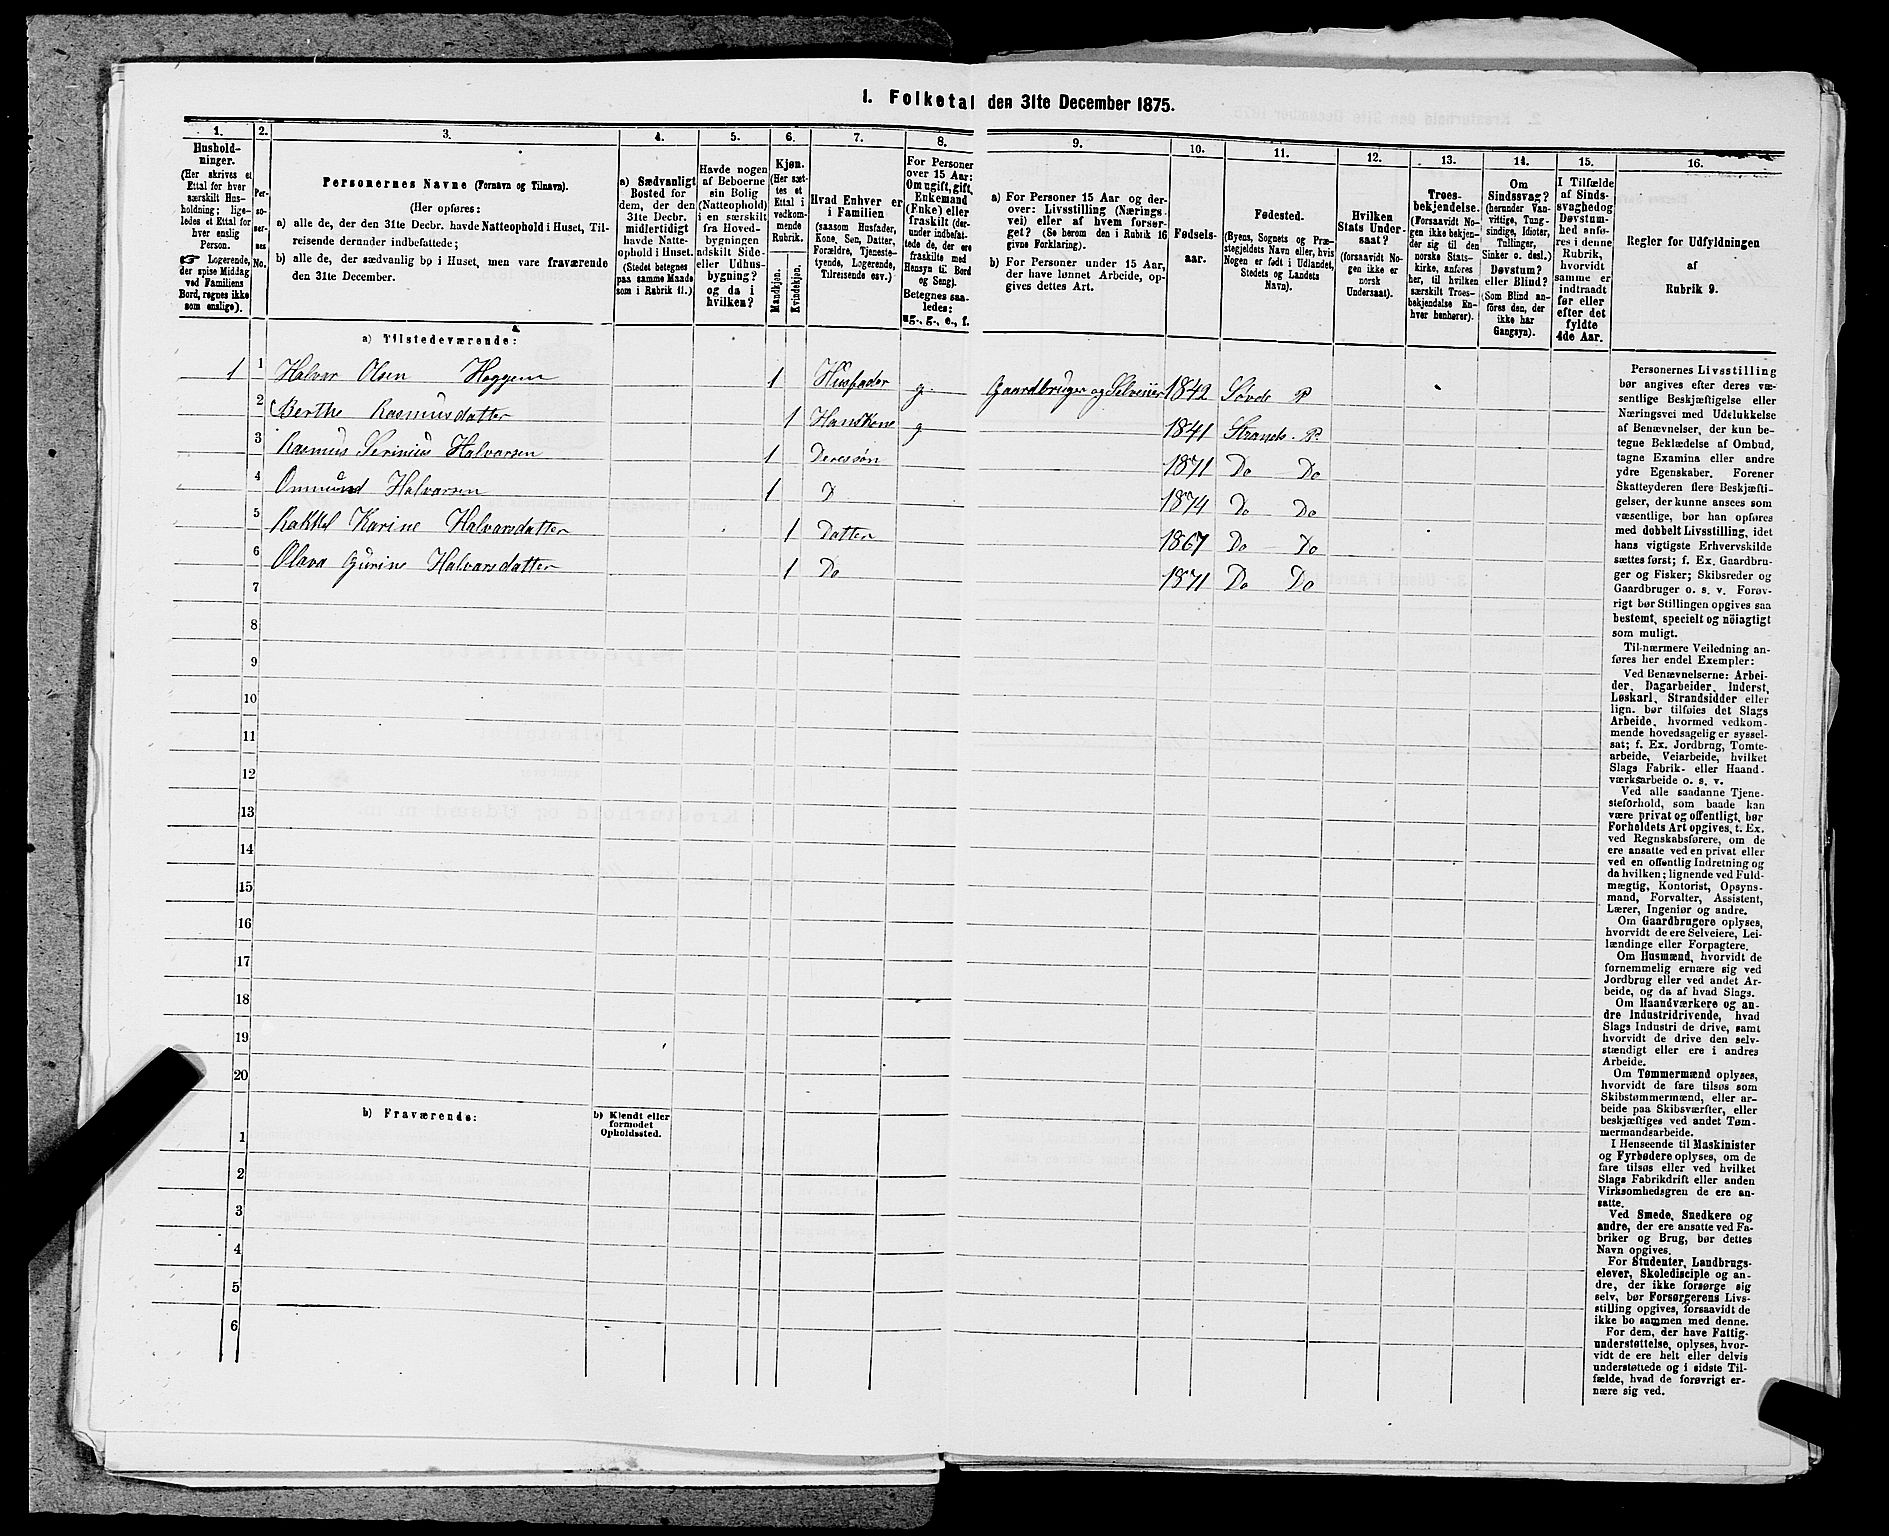 I. Folketal den 31te December 1875.
1. 2. 3. 4. 5. 6. 7. 8. 9. 10. 11. 12. 13. 14. 15. 16.
Hushold-
ninger.
(Her skrives et
Ettal for hver
særskilt Hus-
holdning; lige-
ledes et Ettal for
hver enslig
Person.
☛ Logerende,
der spise Middag
ved Familiens
Bord, regnes ikke
som enslige).
Per-
so-
ner-
nes
No.
Personernes Navne (Fornavn og Tilnavn).
(Her opføres:
a) alle de, der den 31te Decbr. havde Natteophold i Huset, Til-
reisende derunder indbefattede;
b) alle de, der sædvanlig bo i Huset, men vare fraværende
den 31te December.
a) Sædvanligt
Bosted for
dem, der den
31te Decbr.
midlertidigt
havde Natte-
ophold i Huset.
(Stedet betegnes
paa samme Maade
som i Rubrik 11.)
Havde nogen
af Beboerne
sin Bolig
(Natteophold)
i en særskilt
fra Hoved-
bygningen
adskilt Side-
eller Udhus-
bygning?
og da i
hvilken?
Kjøn.
(Her sæt-
tes et
Ettal i
vedkom-
mende
Rubrik.
Mandkjøn.
Kvindekjøn.
Hvad Enhver er
i Familien
(saasom Husfader,
Kone, Søn, Datter,
Forældre, Tjeneste-
tyende, Logerende,
Tilreisende osv.)
For Personer
over 15 Aar:
Om ugift, gift,
Enkemand
(Enke) eller
fraskilt (der-
under indbefat-
tede de, der ere
fraskilte med
Hensyn til Bord
og Seng).
Betegnes saa-
ledes:
ug., g., e., f.
a) For Personer 15 Aar og der-
over: Livsstilling (Nærings-
vei) eller af hvem forsør-
get? (Se herom den i Rubrik 16
givne Forklaring).
b) For Personer under 15 Aar,
der have lønnet Arbeide, op-
gives dettes Art.
Fødsels-
aar.
Fødested.
(Byens, Sognets og Præ-
stegjeldets Navn eller, hvis
Nogen er født i Udlandet,
Stedets og Landets
Navn).
Hvilken
Stats Under-
saat?
(forsaavidt No-
gen ikke er
norsk
Undersaat).
Troes-
bekjendelse.
(Forsaavidt No-
gen ikke bekjen-
der sig til den
norske Stats-
kirke, anføres
her, til hvilken
særskilt Troes-
bekjendelse En-
hver henhører).
Om
Sindssvag?
(herunder Van-
vittige, Tung-
sindige, Idioter,
Tullinger,
Sinker o. desl.)
Døvstum?
eller Blind?
(Som Blind an-
føres den, der
ikke har
Gangsyn).
I Tilfælde
af Sinds-
svaghed og
Døvstum-
hed anfø-
res i denne
Rubrik,
hvorvidt
samme er
indtraadt
før eller
efter det
fyldte
4de Aar.
Regler for Udfyldningen
af
Rubrik 9.
a) Tilstedeværende:
1 1 Halvar Olsen Heggem 1 Husfader g. Gaardbruger og Selveier 1842 Søvde P
2 Berthe Rasmusdatter 1 Hans Kone g 1841 Strands P.
3 Rasmus Serinius Halvarsen 1 Deres søn 1871 Do Do
4 Ommund Halvarsen 1 D 1874 Do Do
5 Rakkel Karine Halvarsdatter 1 Datter 1867 Do Do
6 Olava Gurine Halvarsdatter 1 Do 1871 Do Do
7
8
9
10
11
12
13
14
15
16
17
18
19
20
b) Fraværende:
b) Kjendt eller
formodet
Opholdssted.
1
2
3
4
5
6
Personernes Livsstilling
bør angives efter deres væ-
sentlige Beskjæftigelse eller
Næringsvei med Udelukkelse
af Benævnelser, der kun be-
tegne Beklædelse af Ombud,
tagne Examina eller andre
ydre Egenskaber. Forener
Skatteyderen flere Beskjæfti-
gelser, der kunne ansees som
væsentlige, bør han opføres
med dobbelt Livsstilling, idet
hans vigtigste Erhvervskilde
sættes først; f. Ex. Gaardbru-
ger og Fisker; Skibsreder og
Gaardbruger o. s. v. Forøv-
rigt bør Stillingen opgives saa
bestemt, specielt og nöiagtigt
som muligt.
Til nærmere Veiledning an-
føres her endel Exempler:
Ved Benævnelserne: Arbei-
der, Dagarbeider, Inderst,
Løskarl, Strandsidder eller
lign. bør tilføies det Slags
Arbeide, hvormed vedkom-
mende hovedsagelig er syssel-
sat; f. Ex. Jordbrug, Tomte-
arbeide, Veiarbeide, hvilket
Slags Fabrik- eller Haand-
værksarbeide o. s. v.
Ved alle saadanne Tjene-
steforhold, som baade kan
være privat og offentligt, bør
Forholdets Art opgives, t. Ex.
ved Regnskabsførere, om de
ere ansatte ved en privat eller
ved en offentlig Indretning og
da hvilken; lignende ved Fuld-
mægtig, Kontorist, Opsyns-
mand, Forvalter, Assistent,
Lærer, Ingeniør og andre.
Om Gaardbrugere oplyses,
hvorvidt de ere Selveiere, Lei-
lændinge eller Forpagtere.
Om Husmænd, hvorvidt de
fornemmelig ernære sig ved
Jordbrug eller ved andet Ar-
beide, og da af hvad Slags.
Om Haandværkere og an-
dre Industridrivende, hvad
Slags Industri de drive, samt
hvorvidt de drive den selv-
stændigt eller ere i andres
Arbeide.
Om Tømmermænd oplyses,
hvorvidt de fare tilsøs som
Skibstømmermænd, eller ar-
beide paa Skibsværfter, eller
beskjæftiges ved andet Tøm-
mermandsarbeide.
I Henseende til Maskinister
og Fyrbødere oplyses, om de
fare tilsøs eller ved hvilket
Slags Fabrikdrift eller anden
Virksomhedsgren de ere an-
satte.
Ved Smede, Snedkere og
andre, der ere ansatte ved Fa-
briker og Brug, bør dettes
Navn opgives.
For Studenter, Landbrugs-
elever, Skoledisciple og an-
dre, der ikke forsørge sig
selv, bør Forsørgerens Livs-
stilling opgives, forsaavidt de
ikke bo sammen med denne.
For dem, der have Fattig-
understøttelse, oplyses, hvor-
vidt de ere helt eller delvis
understøttede og i sidste Til-
fælde, hvad de forøvrigt er-
nære sig ved.